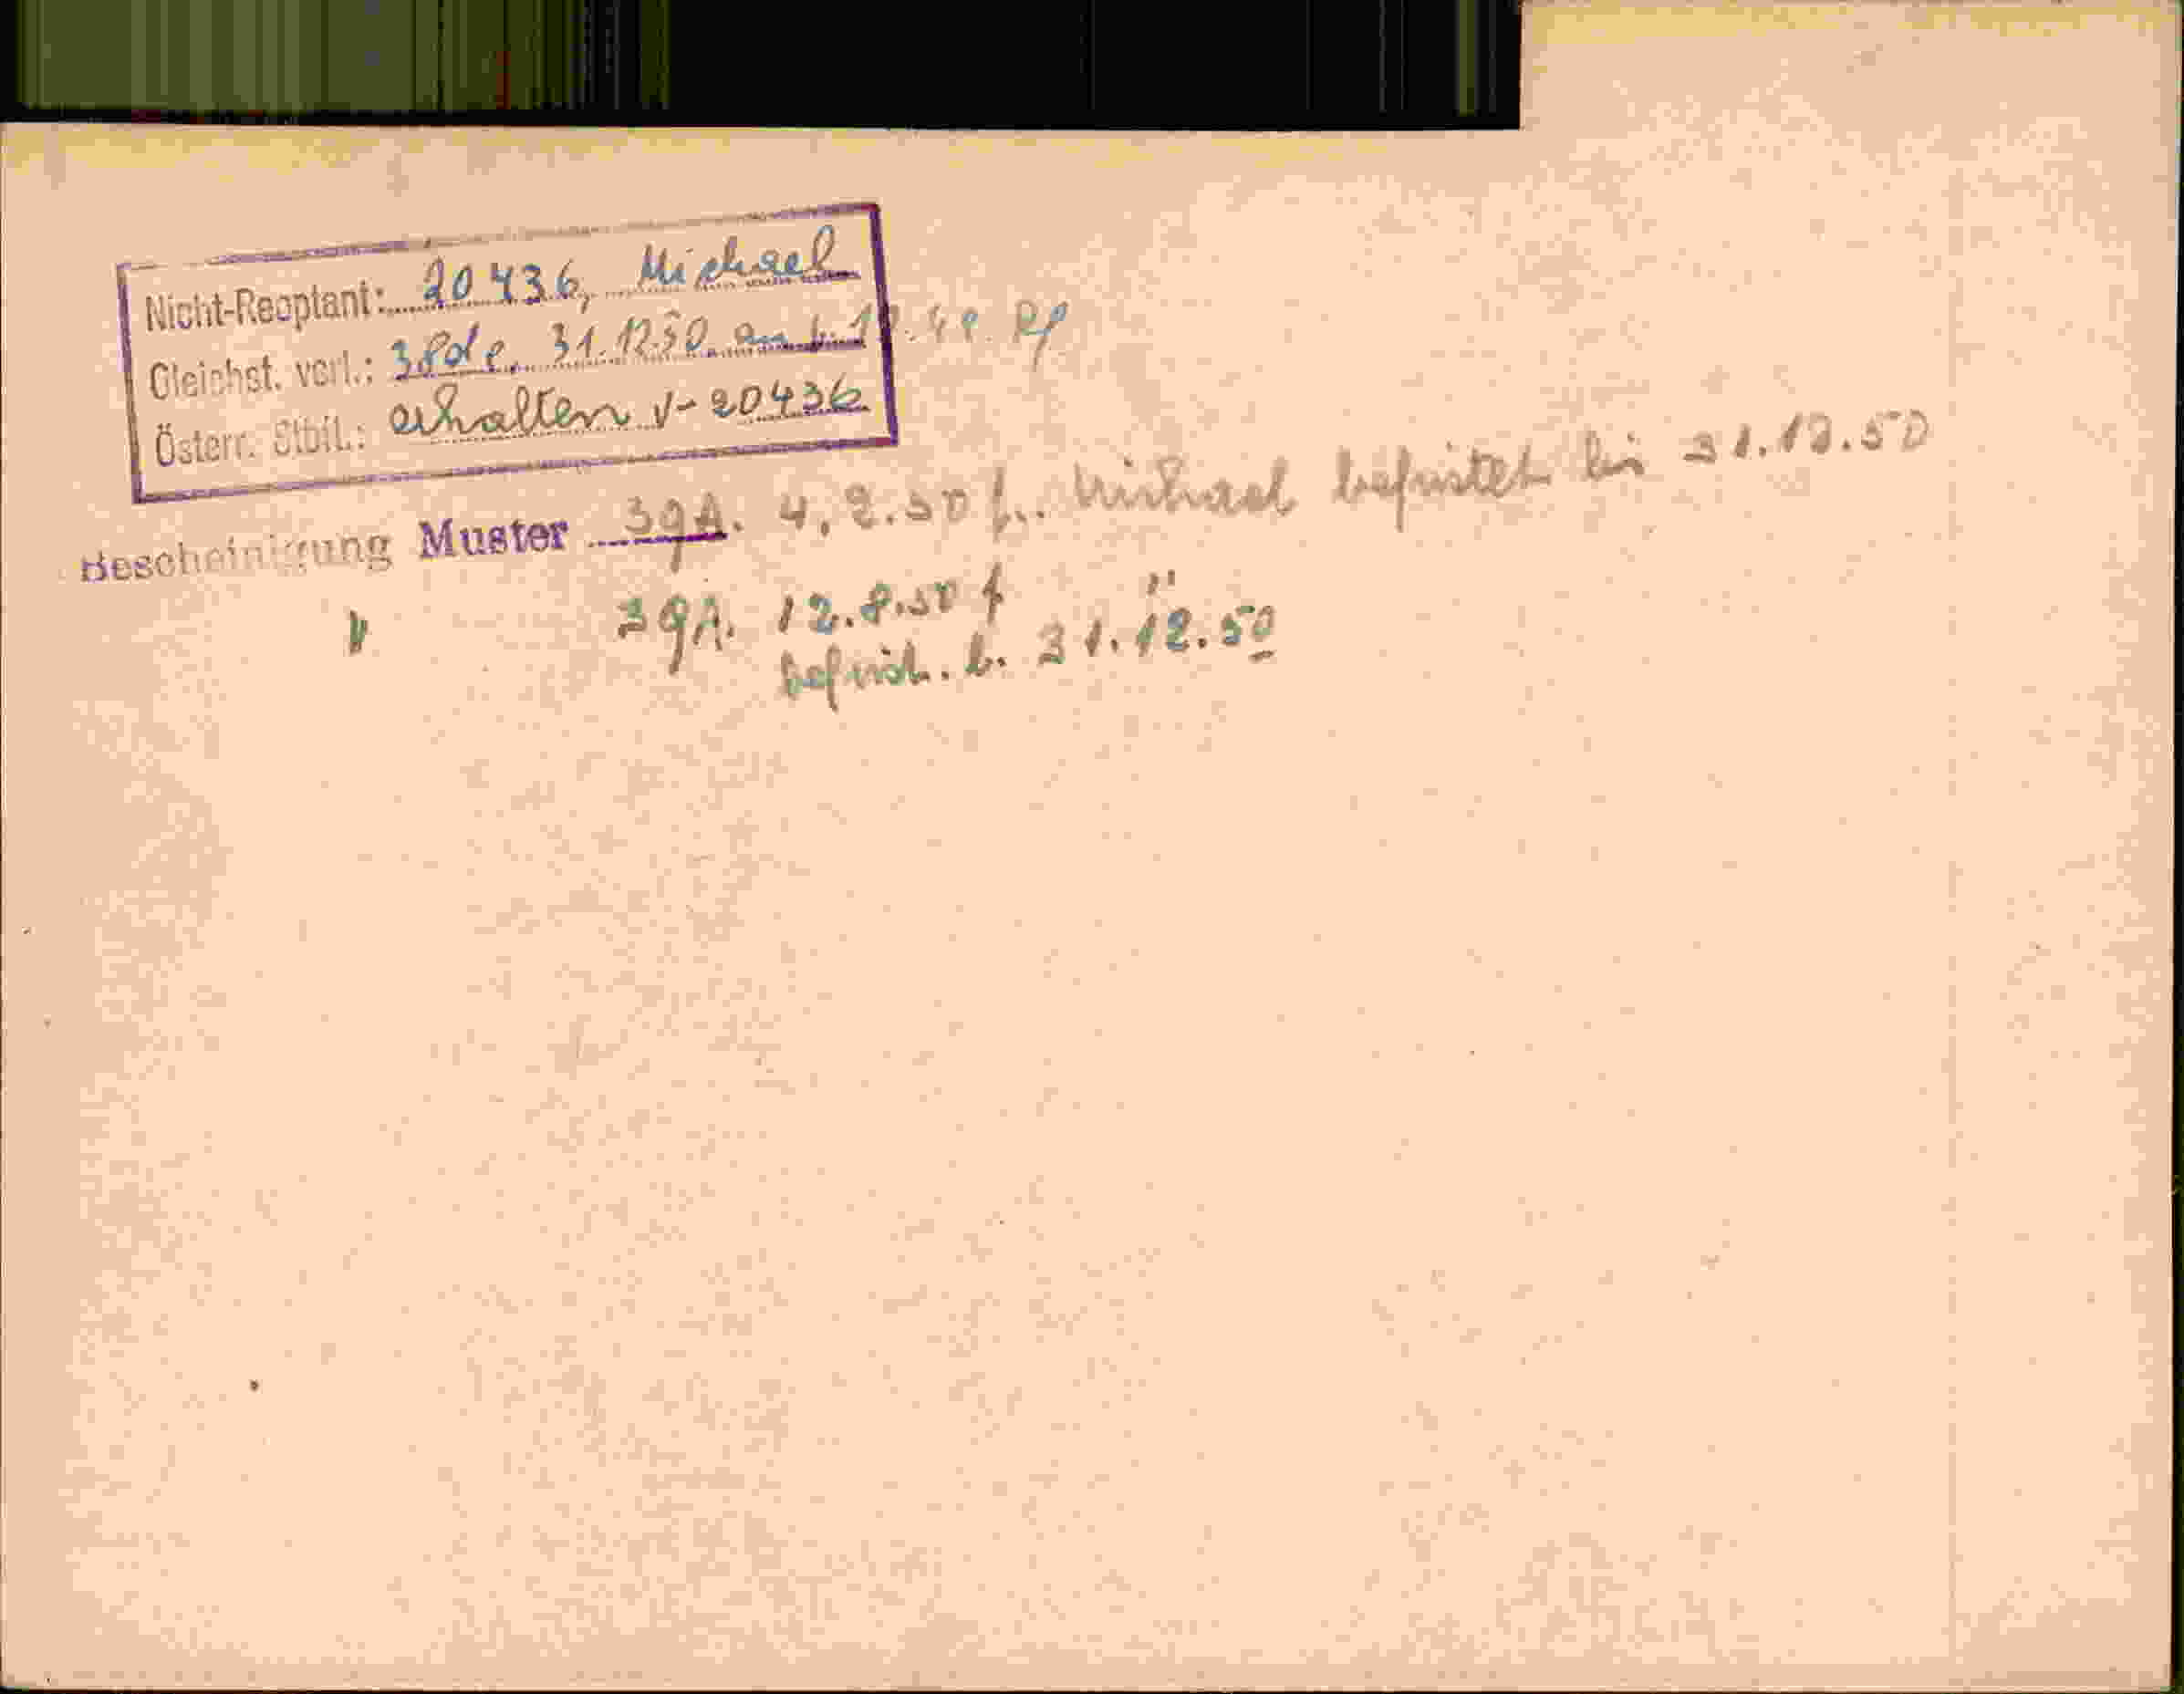 Nicht-Reoptant: 20436, Michael
Gleichst. verl.: 31.12.50. am 49.
Österr. Stbll.: erhalten V-20436
Bescheinigung Muster 39A. 4.2.50 f. Michael befristet bis 31.12.50
" 39A. 12.8.50 f "
befrist. b. 31.12.50